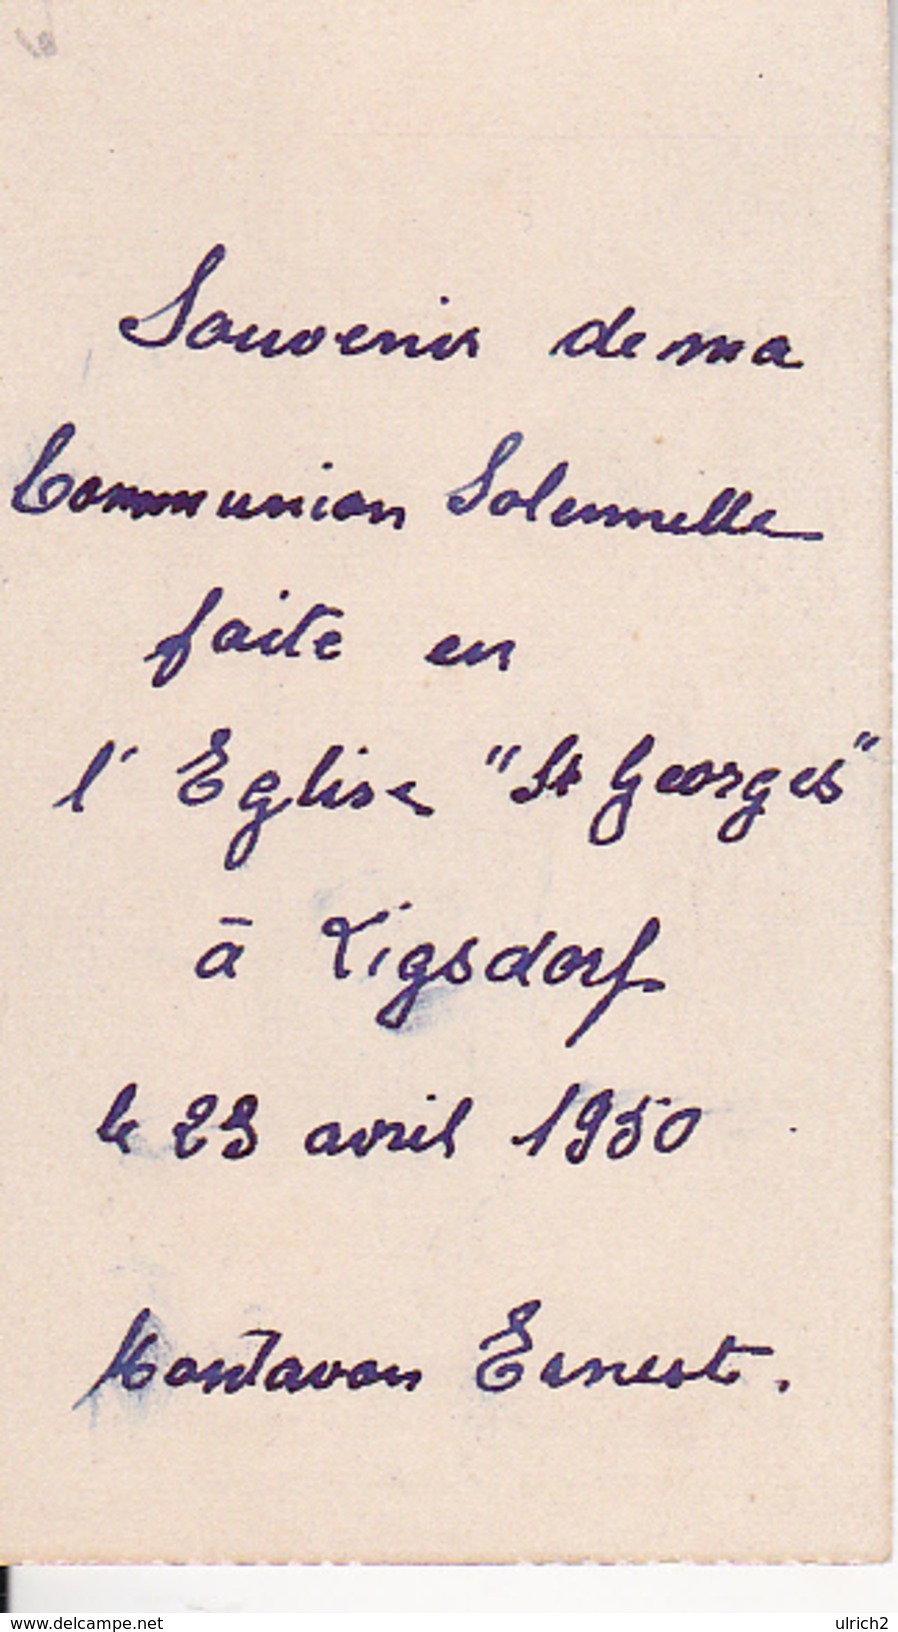 Souvenir de ma
Communion Solennelle
faite en
l'Eglise "St Georges"
à Ligsdorf
le 23 avril 1950
Montavon Ernest.
www.delcampe.net
ulrich2